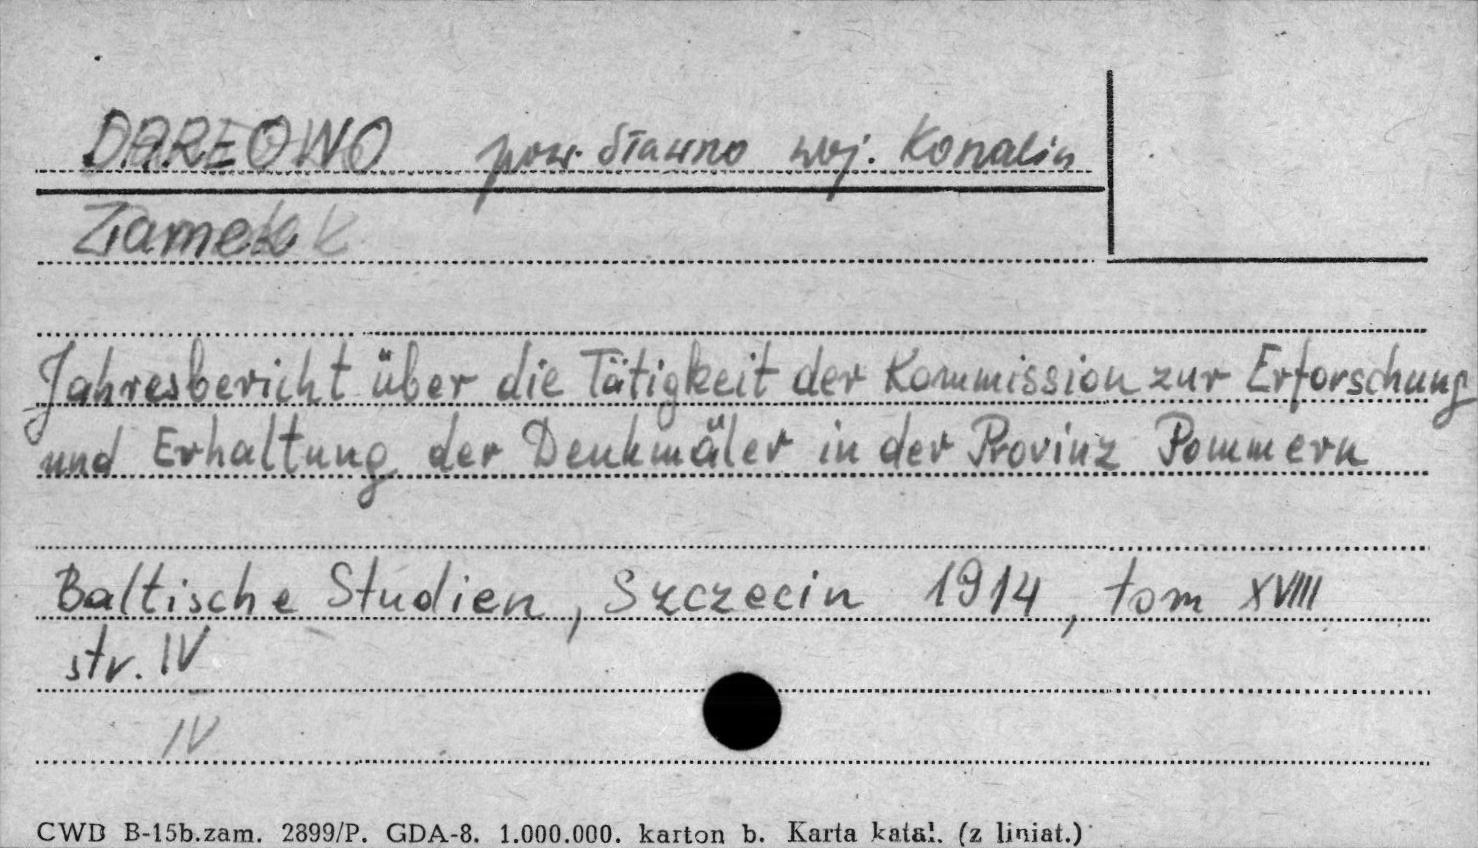 DAREOWO pow. Sławno woj. Konalin
Zamek k
Jahresbericht über die Tätigkeit der Kommission zur Erforschung
und Erhaltung der Denkmäler in der Provinz Pommern
Baltische Studien, Szczecin 1914, tom XVIII
str. IV
IV
CWD B-15b.zam. 2899/P. GDA-8. 1.000.000. karton b. Karta katal. (z liniat.)